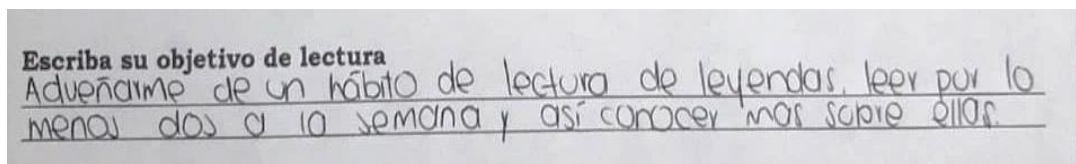 Escriba su objetivo de lectura
Adueñarme de un hábito de lectura de leyendas, leer por lo
menos dos a la semana y así conocer mas sobre ellas.